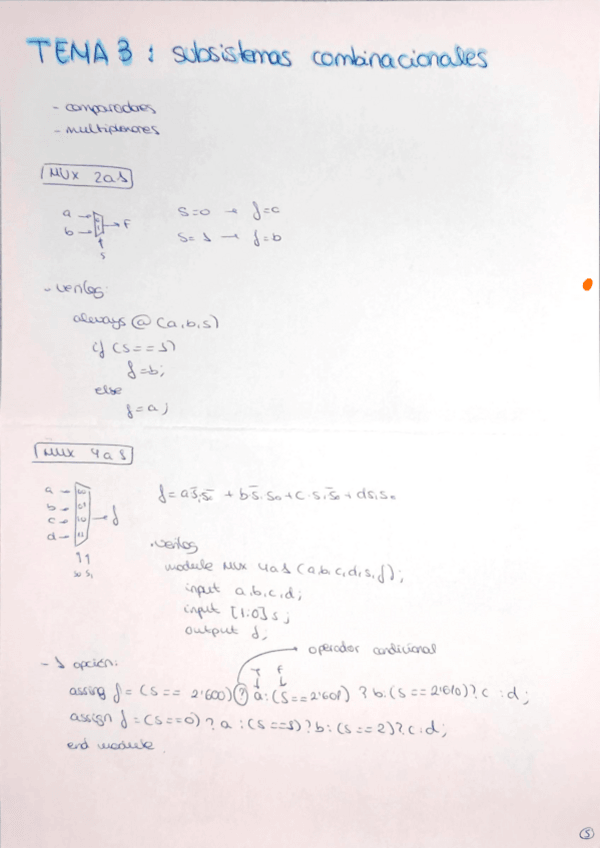 TEMA 3 : subsistemas combinacionales
- comparadores
- multiplexores
MUX 2a1
a
b
F
s
S=0 → f=c
S=1 → f=b
- verilog:
always @ (a,b,s)
if (s==1)
f=b;
else
f=a;
MUX 4a1
a
b
c
d
f
s0 s1
f = a s̄1 s̄0 + b s̄1 s0 + c s1 s̄0 + d s1 s0
. verilog
module MUX 4a1 (a,b,c,d,s,f);
input a,b,c,d;
input [1:0] s;
output f;
operador condicional
- 1 opción:
T F
assing f = (s == 2'b00) ? a : (s == 2'b01) ? b : (s == 2'b10) ? c : d;
assign f = (s==0) ? a : (s==1) ? b : (s==2) ? c : d;
end module
5